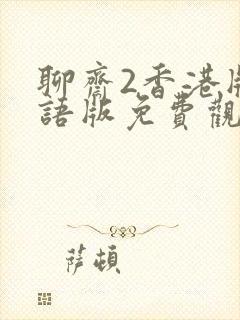 聊齋2香港版
語版免費觀
薩頓